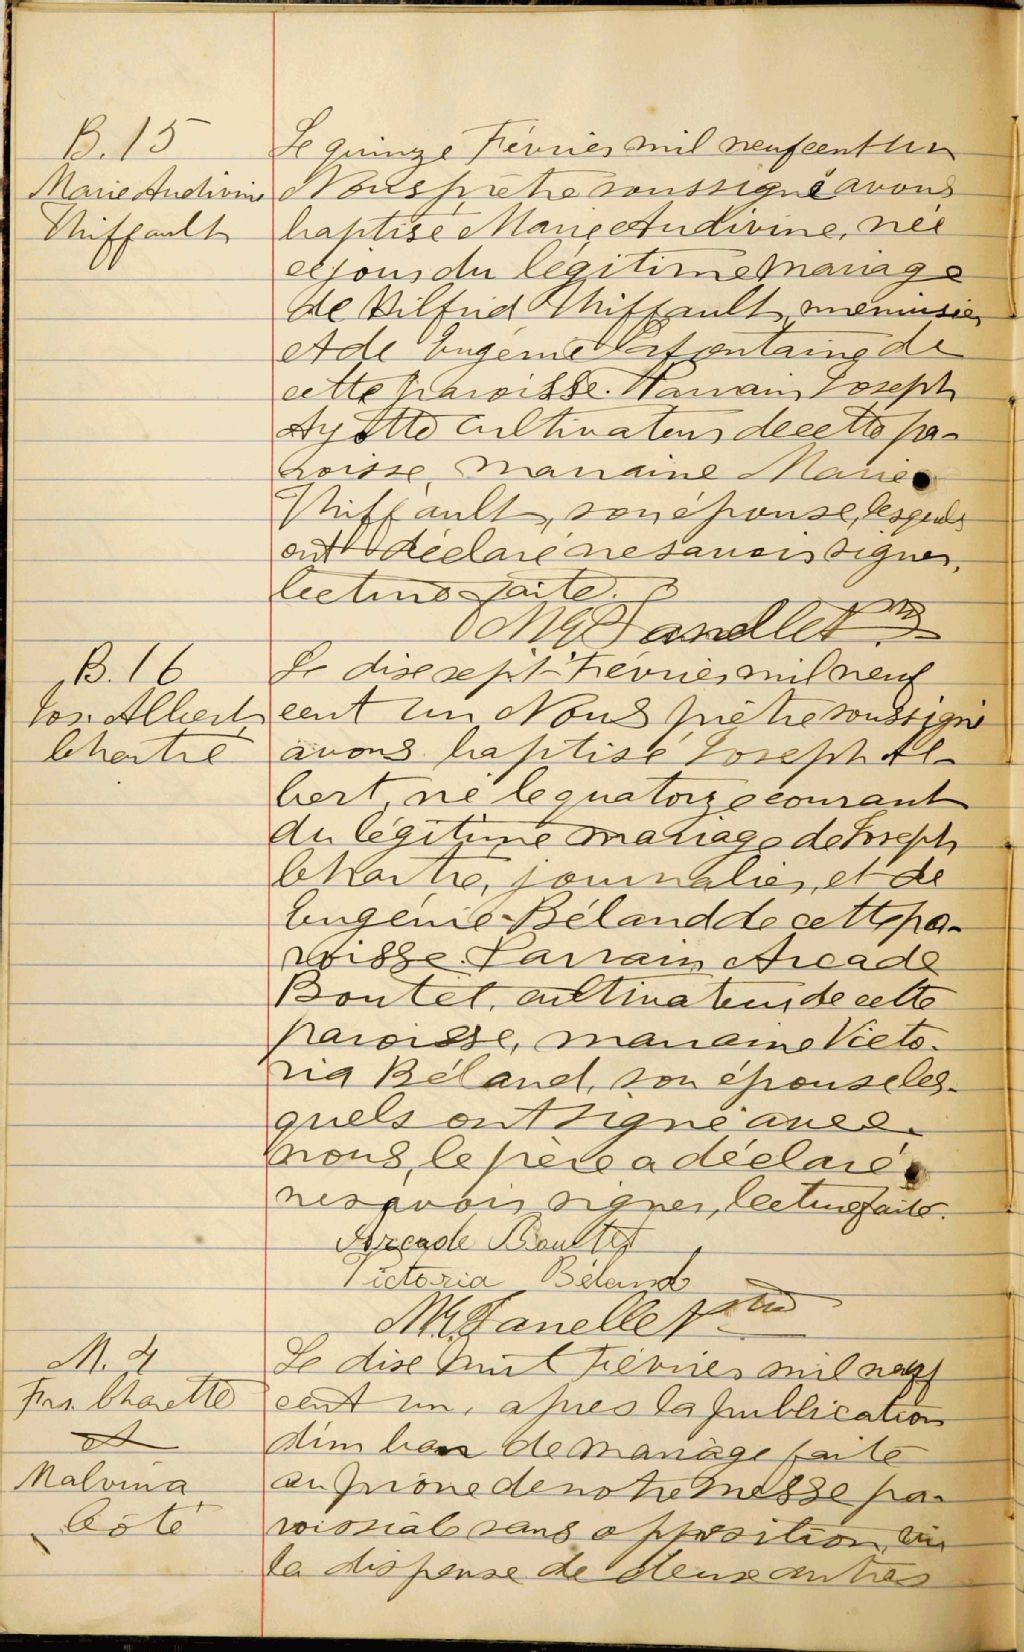 B. 15
Marie Audivine
Thiffault
Le quinze Février mil neufcent un
Nous prêtre soussigné avons
baptisé Marie Audivine, née
ce jour du légitime mariage
de Wilfrid Thiffault, menuisier
et de Eugénie Lafontaine de
cette paroisse. Parrain Joseph
Ayotte cultivateur de cette pa-
roisse, marraine Marie
Thiffault, son épouse, lesquels
ont déclaré ne savoir signer,
lecture faite.
B. 16
Jos. Albert
Chartré
Le dixsept Février mil neuf
cent un Nous prêtre soussigné
avons baptisé Joseph Al-
bert, né le quatorze courant
du légitime mariage de Joseph
Chartré, journalier, et de
Eugénie Béland de cette pa-
roisse. Parrain Arcade
Boutet, cultivateur de cette
paroisse, marraine Victo-
ria Béland, son épouse les-
quels ont signé avec
nous, le père a déclaré
ne savoir signer, lecture faite.
Arcade Boutet
Victoria Béland
M. 4
Frs. Charette
et
Malvina
Côté
Le dix huit Février mil neuf
cent un, après la publication
d'un ban de mariage faite
au prône de notre messe pa-
roissiale sans opposition, vu
la dispense de deux autres